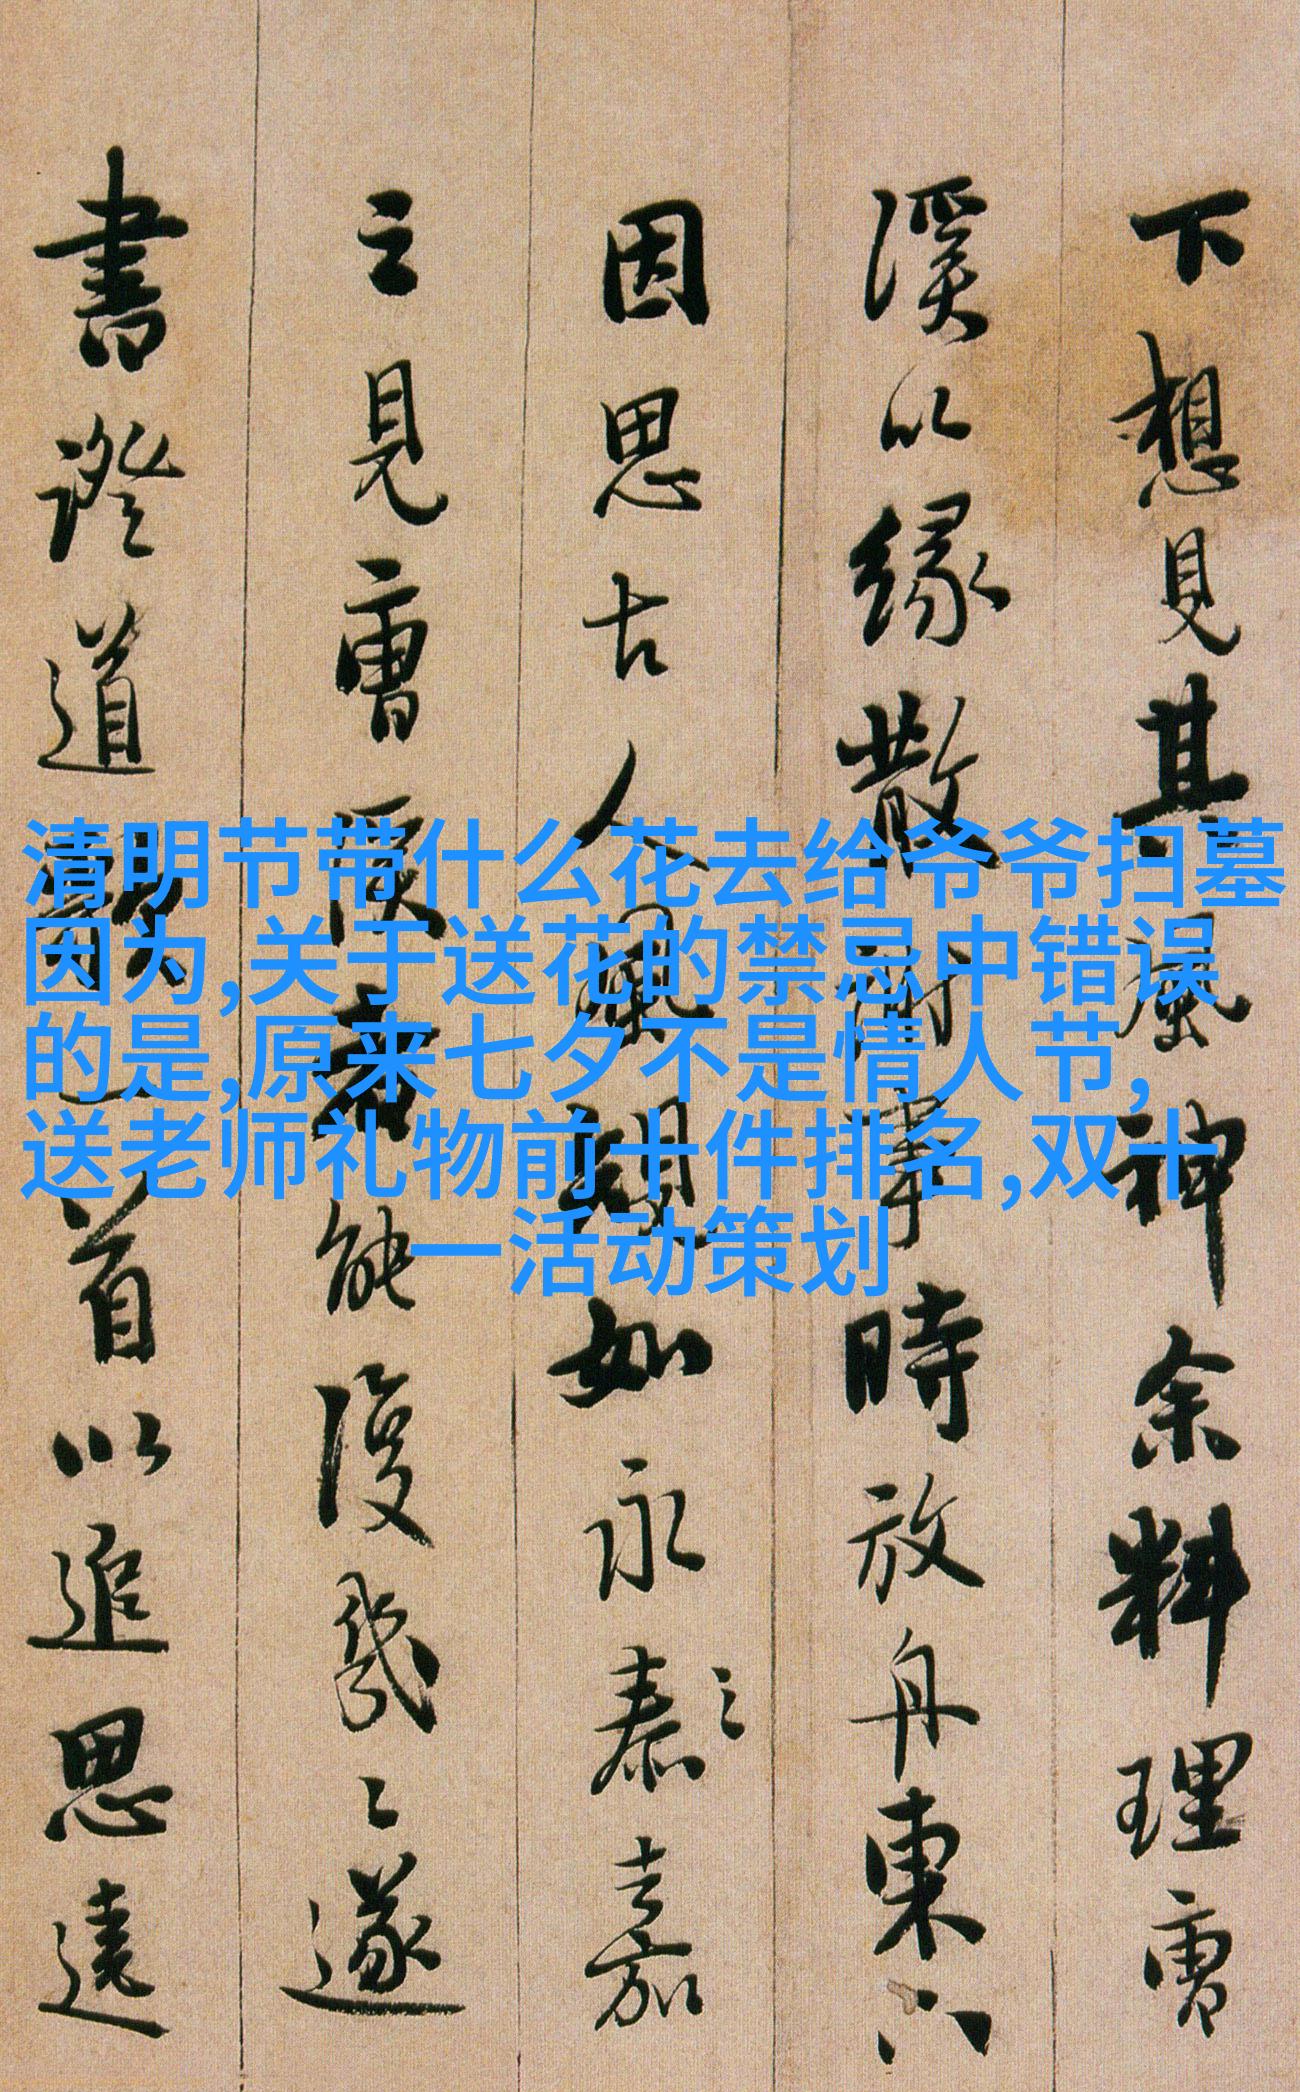 清明节带什么花去给爷爷扫墓
因为,关于送花的禁忌中错误
的是,原来七夕不是情人节,
送老师礼物前十件排名,双十
一活动策划
下想見其風神余料理雪
溪以緣散事時放舟東
因思古人風如永泰之嘉
之見雪溪者能復幾遂
書證道歌一首以追思遠